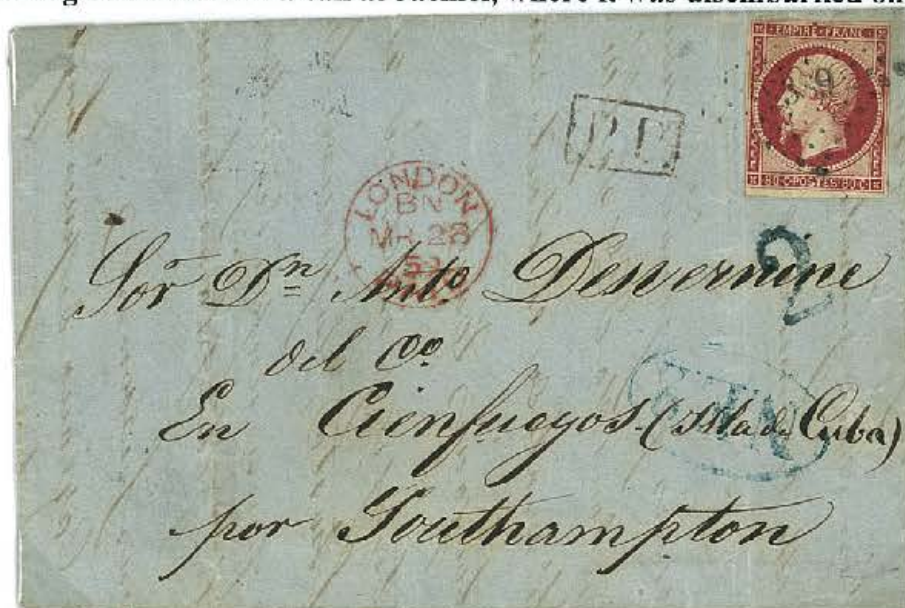 EMPIRE FRANC
P.F.
80·C·POSTES·80·C
LONDON
BN
MR 28
2
Sor Dn Anto Deswernine
del Co
En Cienfuegos (Isla de Cuba)
por Southampton